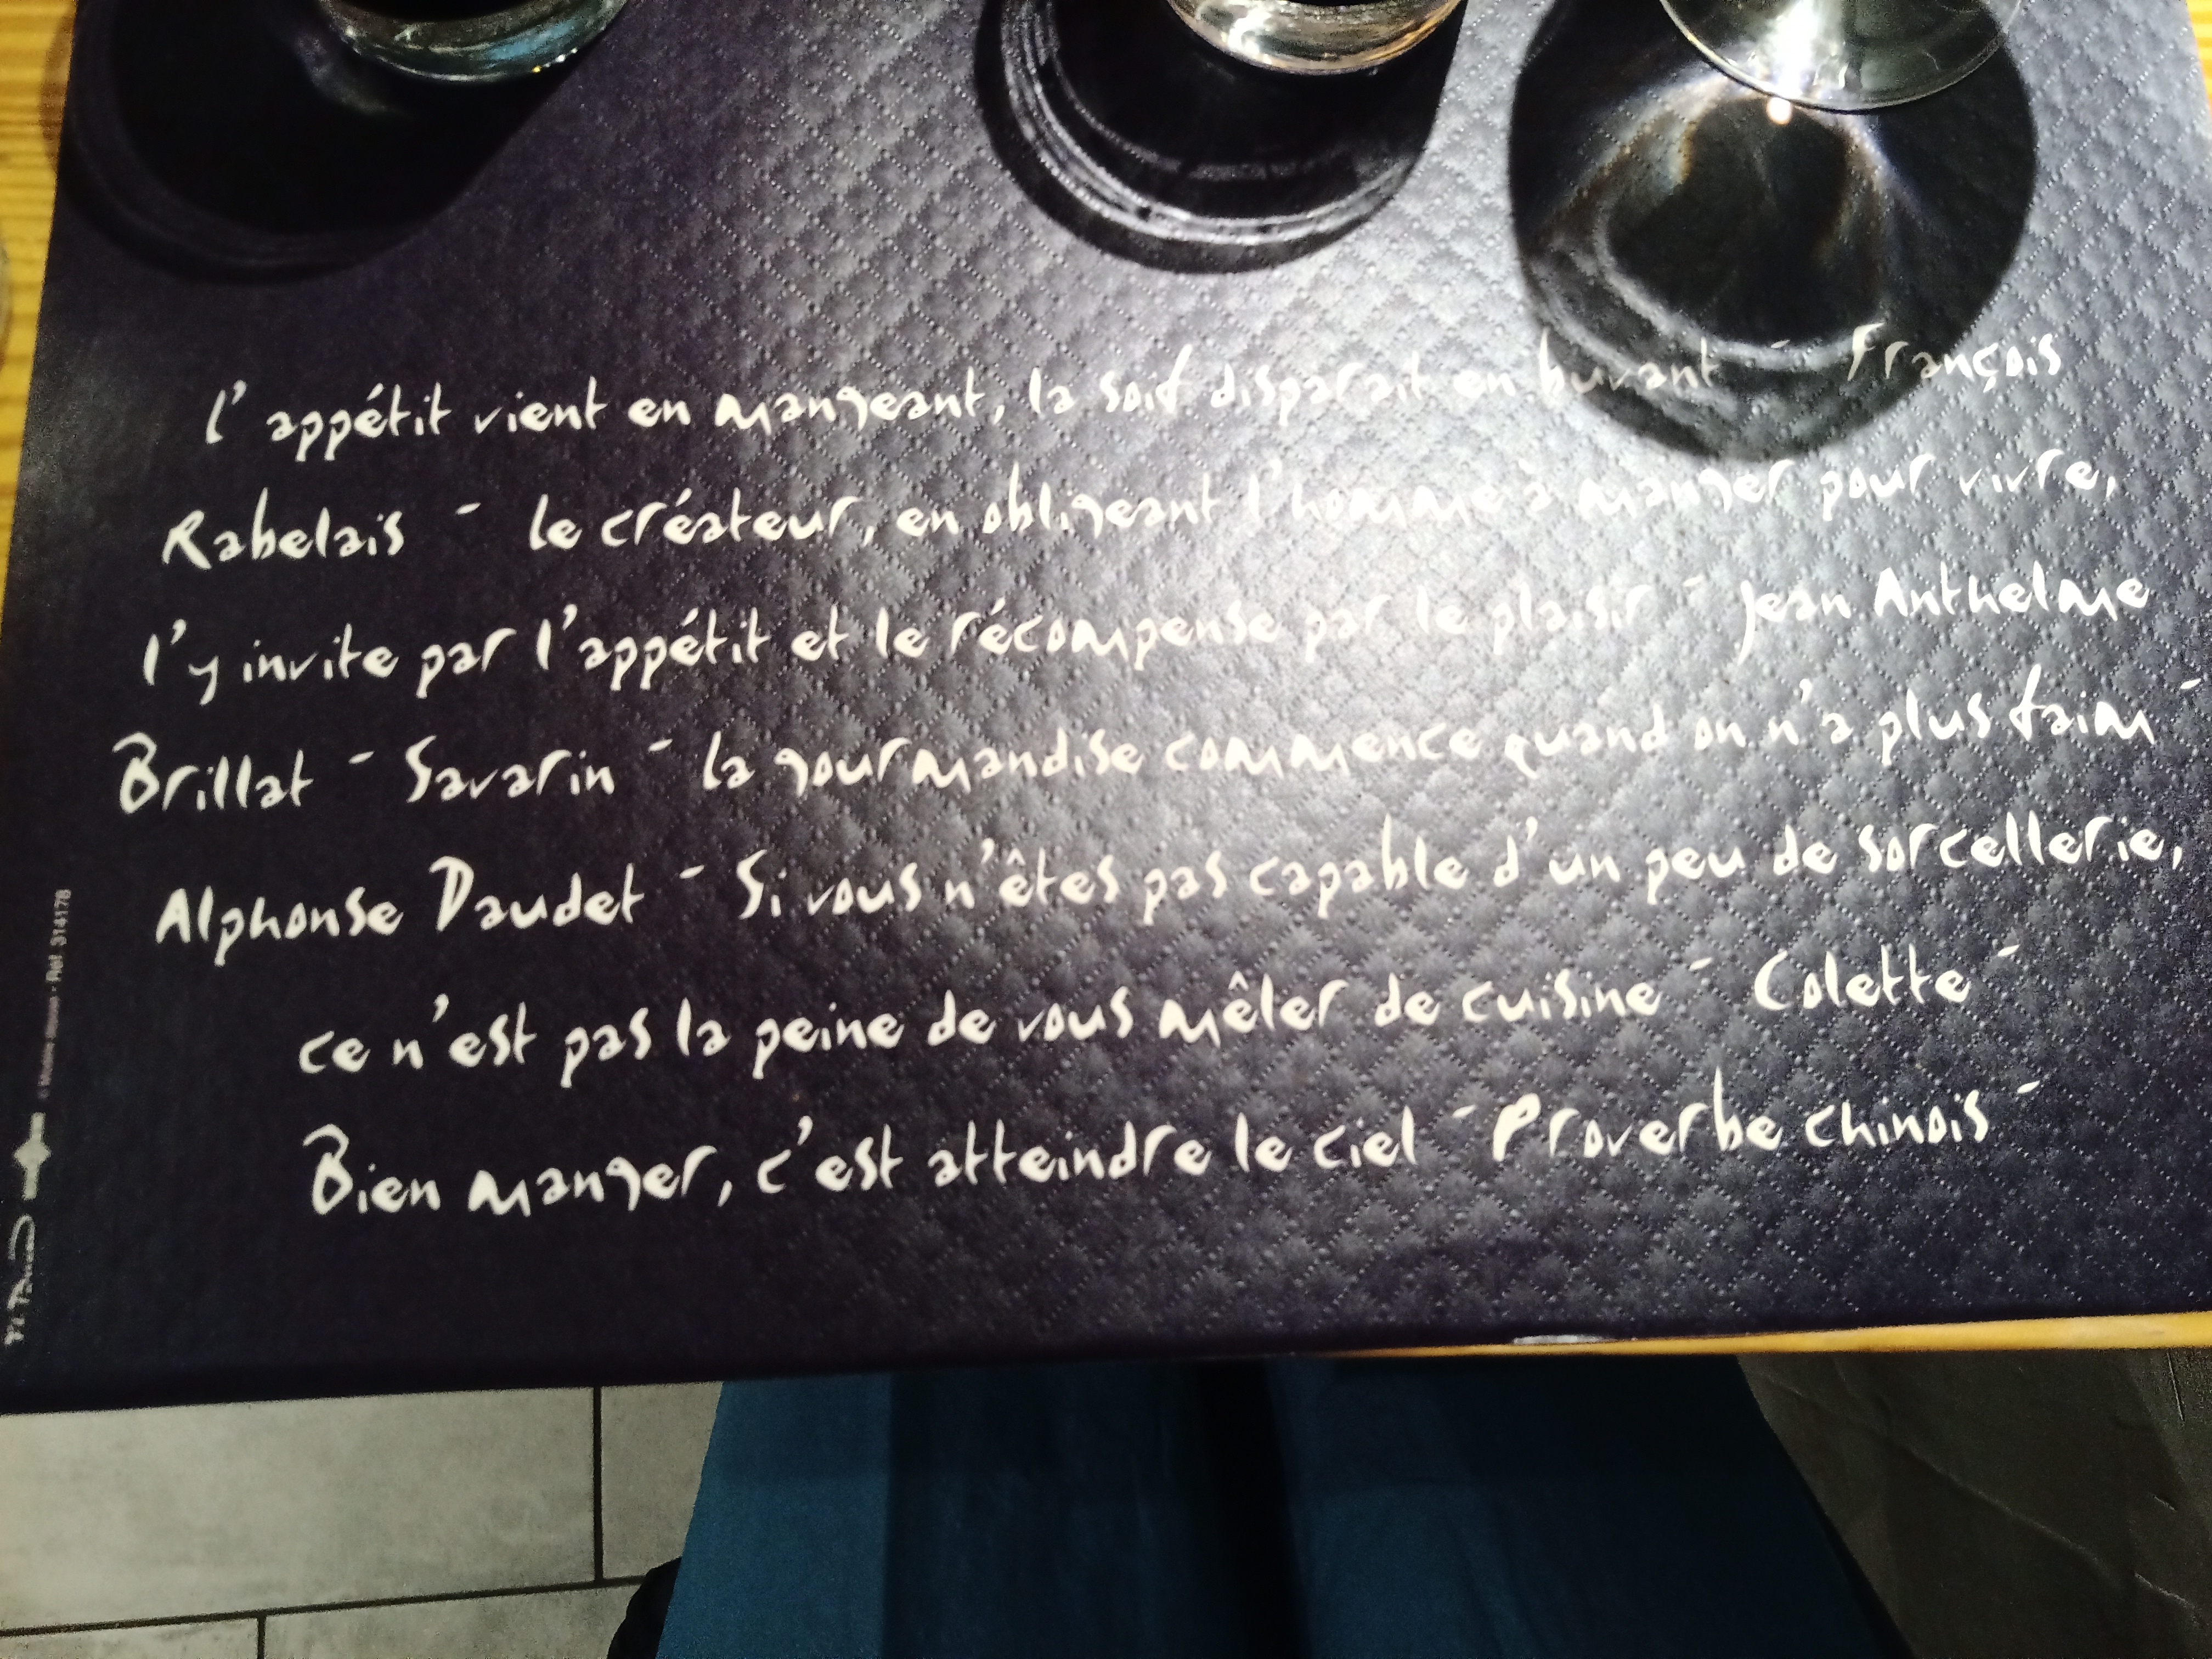 l'appétit vient en mangeant, la soif disparait en buvant - François
Rabelais - le créateur, en obligeant l'homme à manger pour vivre,
l'y invite par l'appétit et le récompense par le plaisir - Jean Anthelme
Brillat - Savarin - la gourmandise commence quand on n'a plus faim -
Alphonse Daudet - Si vous n'êtes pas capable d'un peu de sorcellerie,
ce n'est pas la peine de vous mêler de cuisine - Colette -
Bien manger, c'est atteindre le ciel - Proverbe chinois -
Réf. 314178